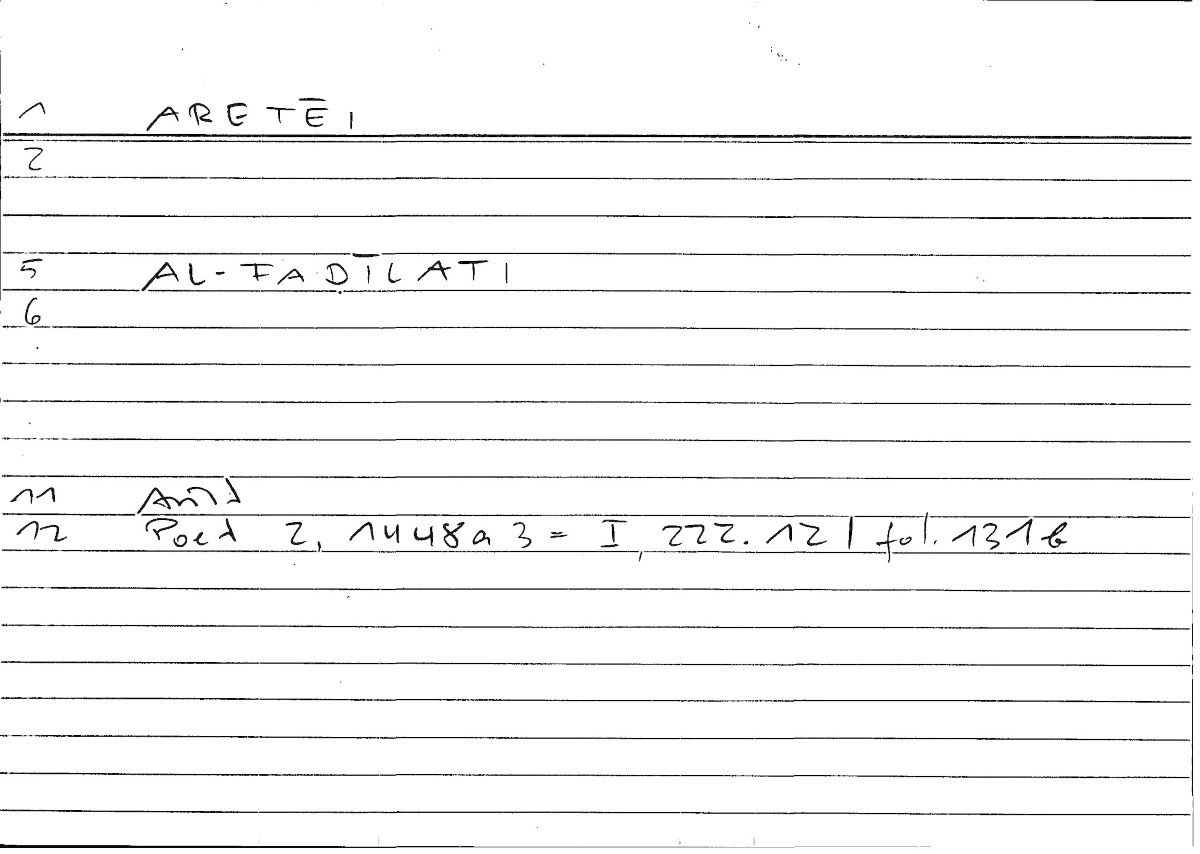 1 ARETĒI
2
5 AL-FAḌĪLATI
6
11 Arist
12 Poet 2, 1448a 3 = I, 222.12 | fol. 131b